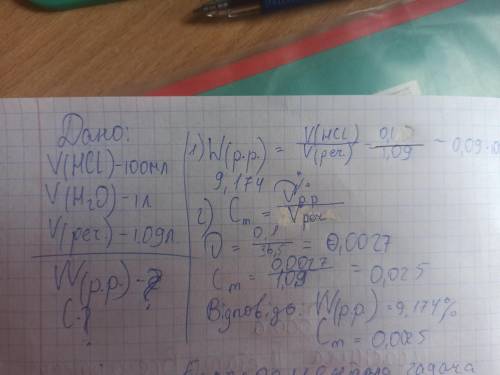 Дано:
V(HCl)-100мл
V(H₂O)-1л
V(реч)-1,09л
W(р.р.)-?
C-?
1) W(р.р.) = V(HCl)/V(реч.) = 0,1/1,09 = 0,09
9,174%
2) Cₘ = Vр.р/Vроз
ν = 0,1/36,5 = 0,0027
Cₘ = 0,0027/1,09 = 0,025
Відповідь: W(р.р.) = 9,174%
Cₘ = 0,0025
задача